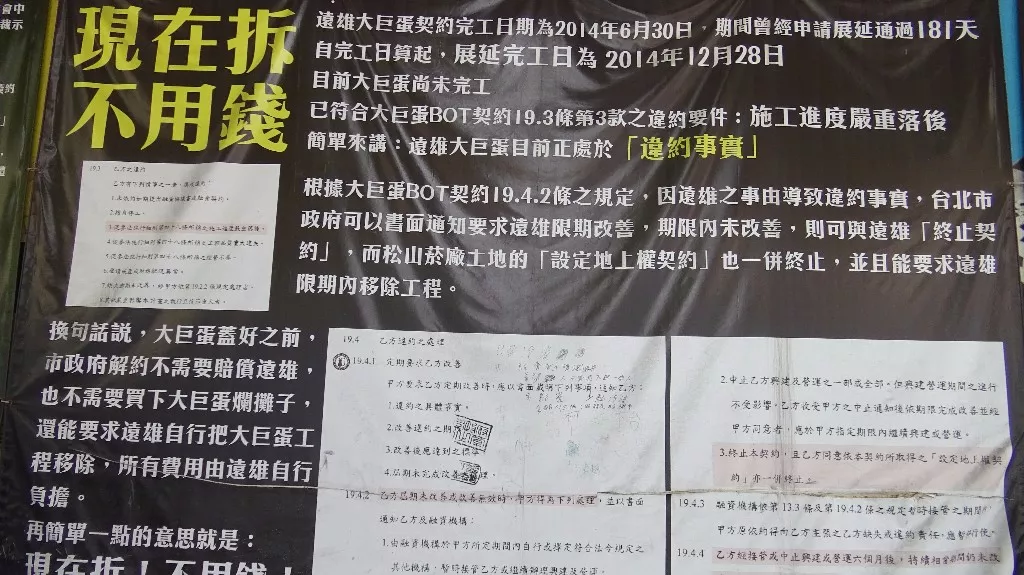 現在拆
不用錢
遠雄大巨蛋契約完工日期為2014年6月30日，期間曾經申請展延通過181天
自完工日算起，展延完工日為 2014年12月28日
目前大巨蛋尚未完工
已符合大巨蛋BOT契約19.3條第3款之違約要件：施工進度嚴重落後
簡單來講：遠雄大巨蛋目前正處於「違約事實」
19.3 乙方之違約
根據大巨蛋BOT契約19.4.2條之規定，因遠雄之事由導致違約事實，台北市
政府可以書面通知要求遠雄限期改善，期限內未改善，則可與遠雄「終止契
約」，而松山菸廠土地的「設定地上權契約」也一併終止，並且能要求遠雄
限期內移除工程。
換句話說，大巨蛋蓋好之前，
市政府解約不需要賠償遠雄，
也不需要買下大巨蛋爛攤子，
還能要求遠雄自行把大巨蛋工
程移除，所有費用由遠雄自行
負擔。
再簡單一點的意思就是：
現在拆！不用錢！
19.4 乙方違約之處理
19.4.1 定期要求乙方改善
甲方要求乙方定期改善時，應以書面載明下列事項，通知乙方：
1.違約之具體事實。
2.改善違約之期
3.改善後應達到之標
4.屆期未完成改善
19.4.2 乙方屆期未改善或改善無效時，甲方得為下列處理，並以書面
通知乙方及融資機構：
1.由融資機構於甲方所定期間內自行或擇定符合法令規定之
其他機構，暫時接管乙方或繼續辦理興建及營運。
2.中止乙方興建及營運之一部或全部。但興建營運期間之進行
不受影響。乙方於受甲方之中止通知後依期限完成改善並經
甲方同意者，應於甲方指定期限內繼續興建或營運。
3.終止本契約，且乙方同意依本契約所取得之「設定地上權契
約」亦一併終止。
19.4.3 融資機構依第 13.3 條及第 19.4.2 條之規定暫時接管之期間
甲方原依約得向乙方主張之乙方缺失或違約責任，應暫停行使。
19.4.4 乙方經接管或中止興建或營運六個月後，持續相當期間仍未改